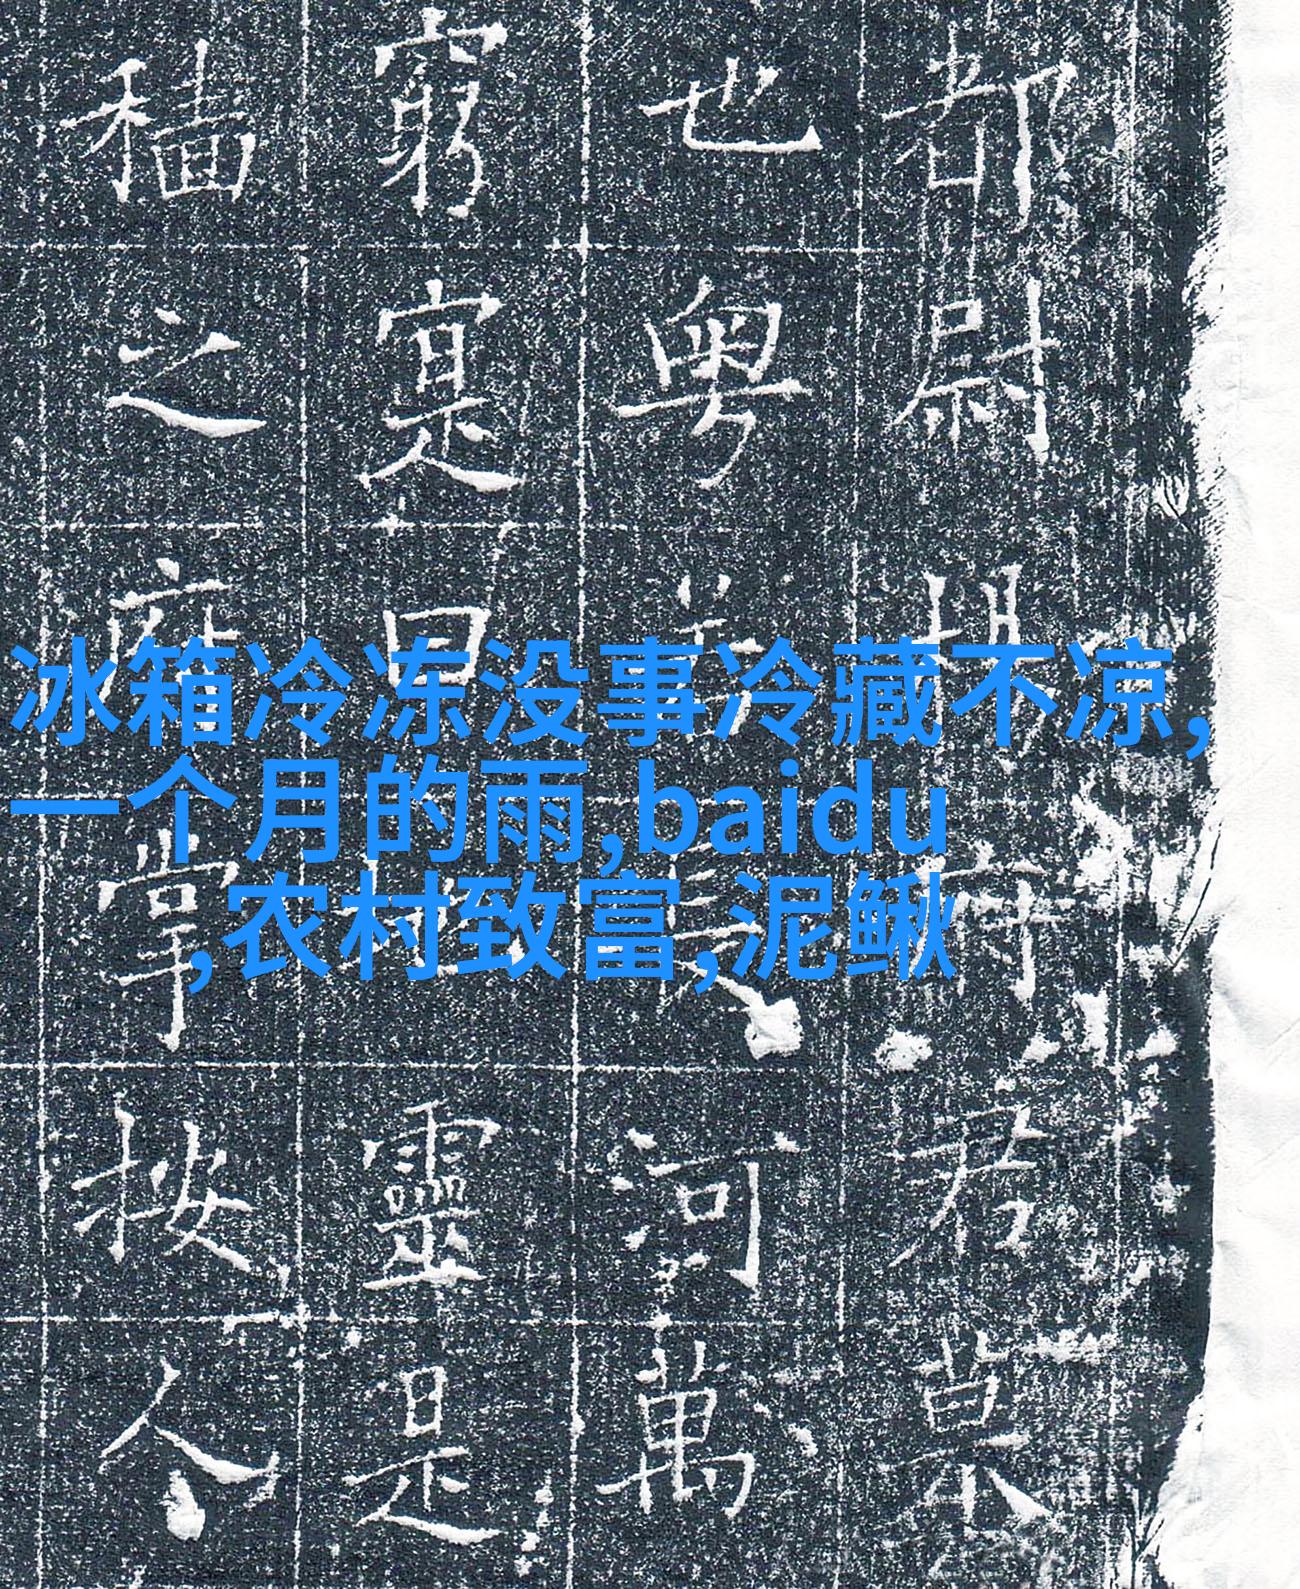 冰箱冷冻没事冷藏不凉,
一个月的雨,baidu
,农村致富,泥鳅
都尉君
也粤河萬
窮寔曰靈是
穡之掌按人